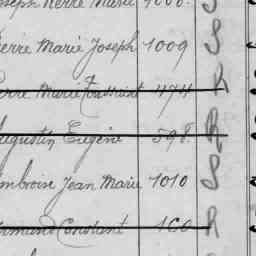 Pierre Marie 1008. S
Pierre Marie Joseph 1009 S
Pierre Marie Toussaint 474 R
Augustin Eugène 598. R
Ambroise Jean Marie 1010 S
Armand Constant 160 R